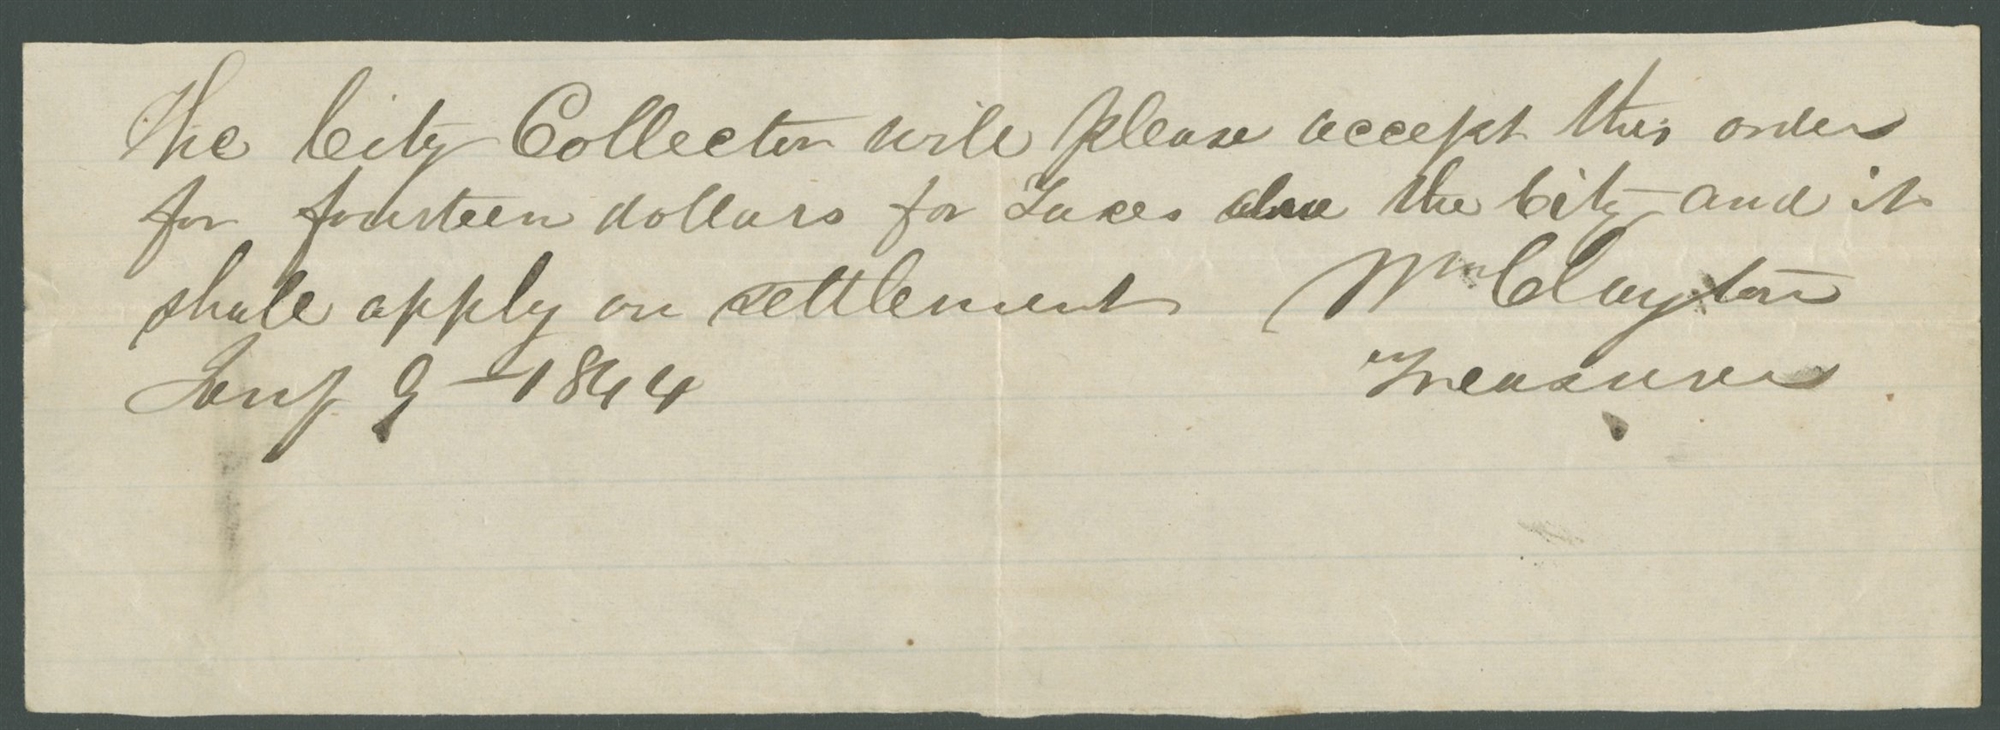 The City Collector will please accept this order
for fourteen dollars for Taxes due the City and it
shall apply on settlement Wm Clayton
Jany 9 - 1844 Treasurer